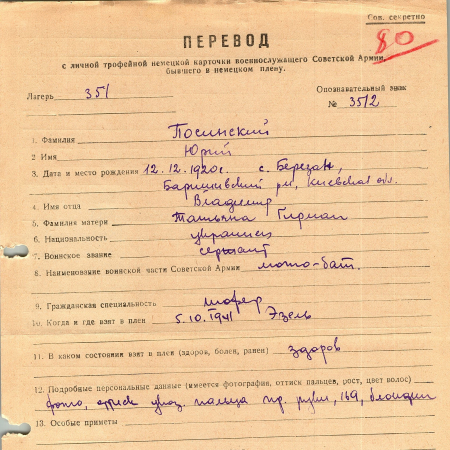 Сов. секретно
80
ПЕРЕВОД
с личной трофейной немецкой карточки военнослужащего Советской Армии,
бывшего в немецком плену.
Лагерь 351 Опознавательный знак
№ 3512
1. Фамилия Посинский
2 Имя Юрий
3. Дата и место рождения 12.12.1920г. с. Березань,
Баришевский р-н, Киевская обл.
4. Имя отца Владимир
5. Фамилия матери Татьяна Гирман
6. Национальность украинец
7. Воинское звание сержант
8. Наименование воинской части Советской Армии мото-бат.
9. Гражданская специальность шофер
10. Когда и где взят в плен 5.10.1941 Эзель
11. В каком состоянии взят в плен (здоров, болен, ранен) здоров
12. Подробные персональные данные (имеется фотография, оттиск пальцев, рост, цвет волос)
фото, оттиск указ. пальца пр. руки, 169, блондин
13. Особые приметы